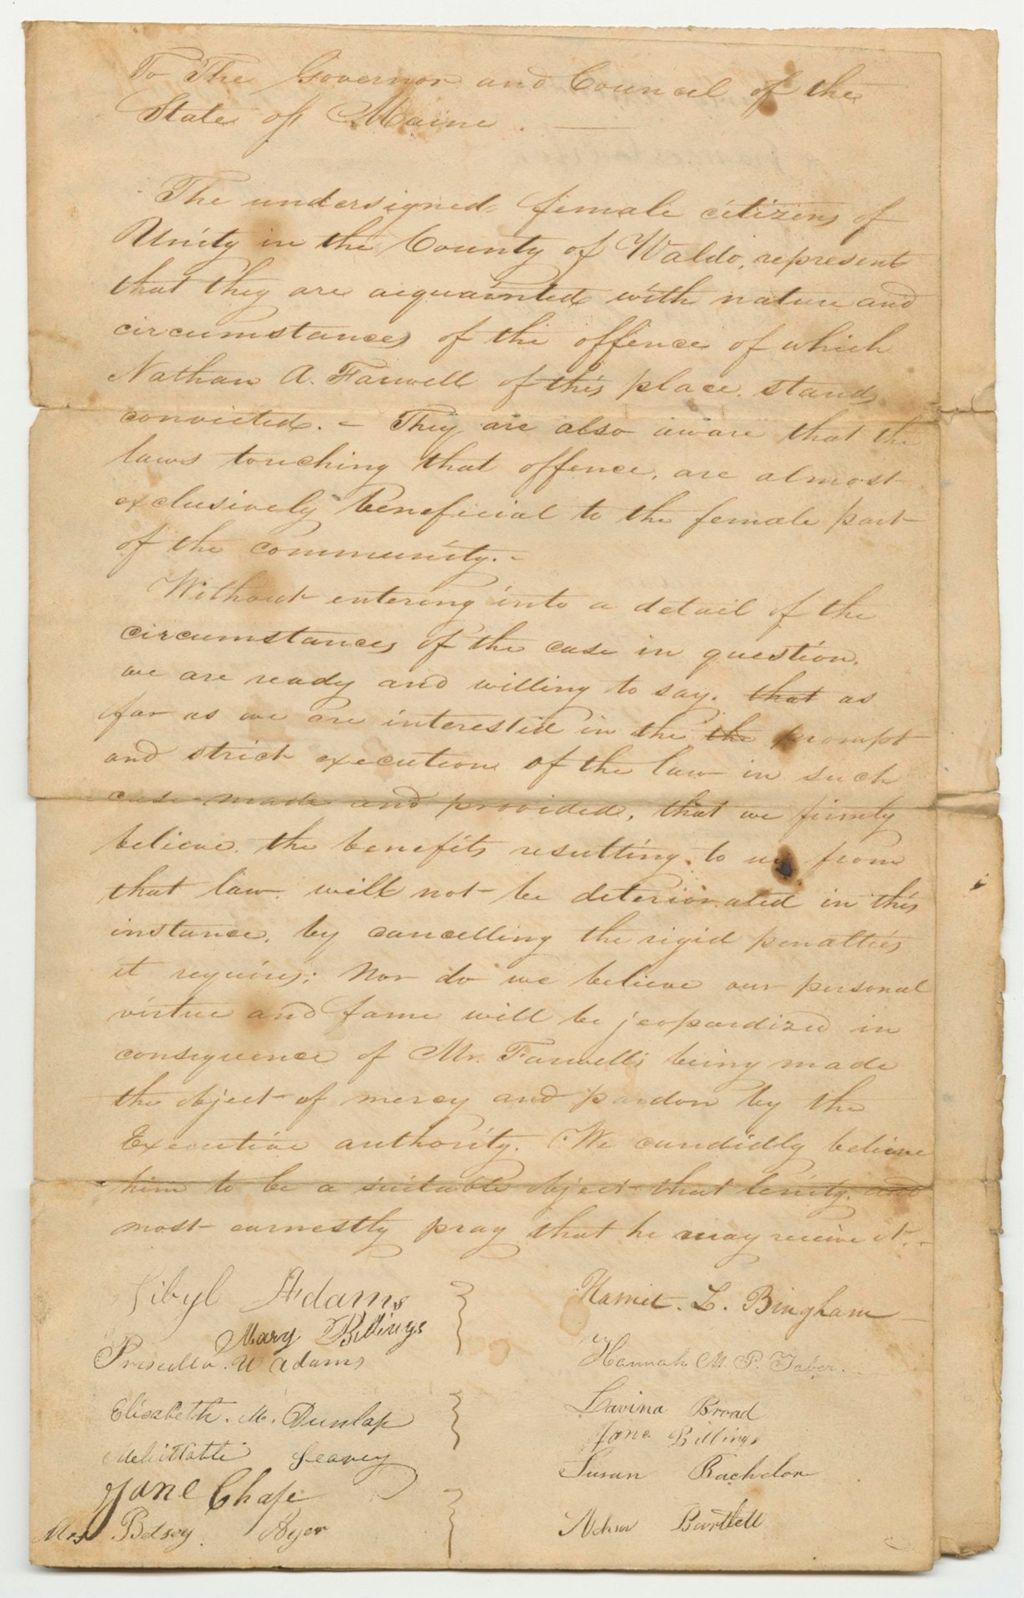 To The Governor and Council of the
State of Maine. —
The undersigned, female citizens of
Unity in the County of Waldo, represent
that they are acquainted with nature and
circumstances of the offence of which
Nathan A. Farwell of this place, stands
convicted. – They are also aware that the
laws touching that offence, are almost
exclusively beneficial to the female part
of the community. –
Without entering into a detail of the
circumstances of the case in question,
we are ready and willing to say, that as
far as we are interested in the the prompt
and strict execution of the law in such
case made and provided, that we firmly
believe the benefits resulting to us from
that law will not be deteriorated in this
instance, by cancelling the rigid penalties
it requires; Nor do we believe our personal
virtue and fame will be jeopardized in
consequence of Mr. Farwell's being made
the object of mercy and pardon by the
Executive authority. We candidly believe
him to be a suitable object that lenity, and
most earnestly pray that he may receive it. –
Sibyl Adams
Mary Billings
Priscilla W Adams
Elizabeth M. Dunlap
Mehittable Seavey
Jane Chase
Mrs Betsey Ayer
Harriet L. Bingham
Hannah M. P. Taber
Lavina Broad
Jane Billings
Susan Bachelor
Bartlett